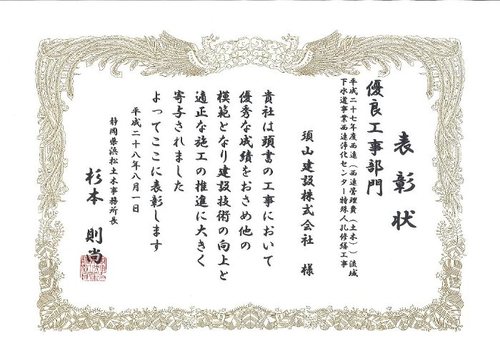 表彰状
優良工事部門
平成二十七年度西遠(西遠管理費(土木))流域
下水道事業西遠浄化センター特殊人孔修繕工事
須山建設株式会社 様
貴社は頭書の工事において
優秀な成績をおさめ他の
模範となり建設技術の向上と
適正な施工の推進に大きく
寄与されました
よってここに表彰します
平成二十八年八月一日
静岡県浜松土木事務所長
杉本 則尚